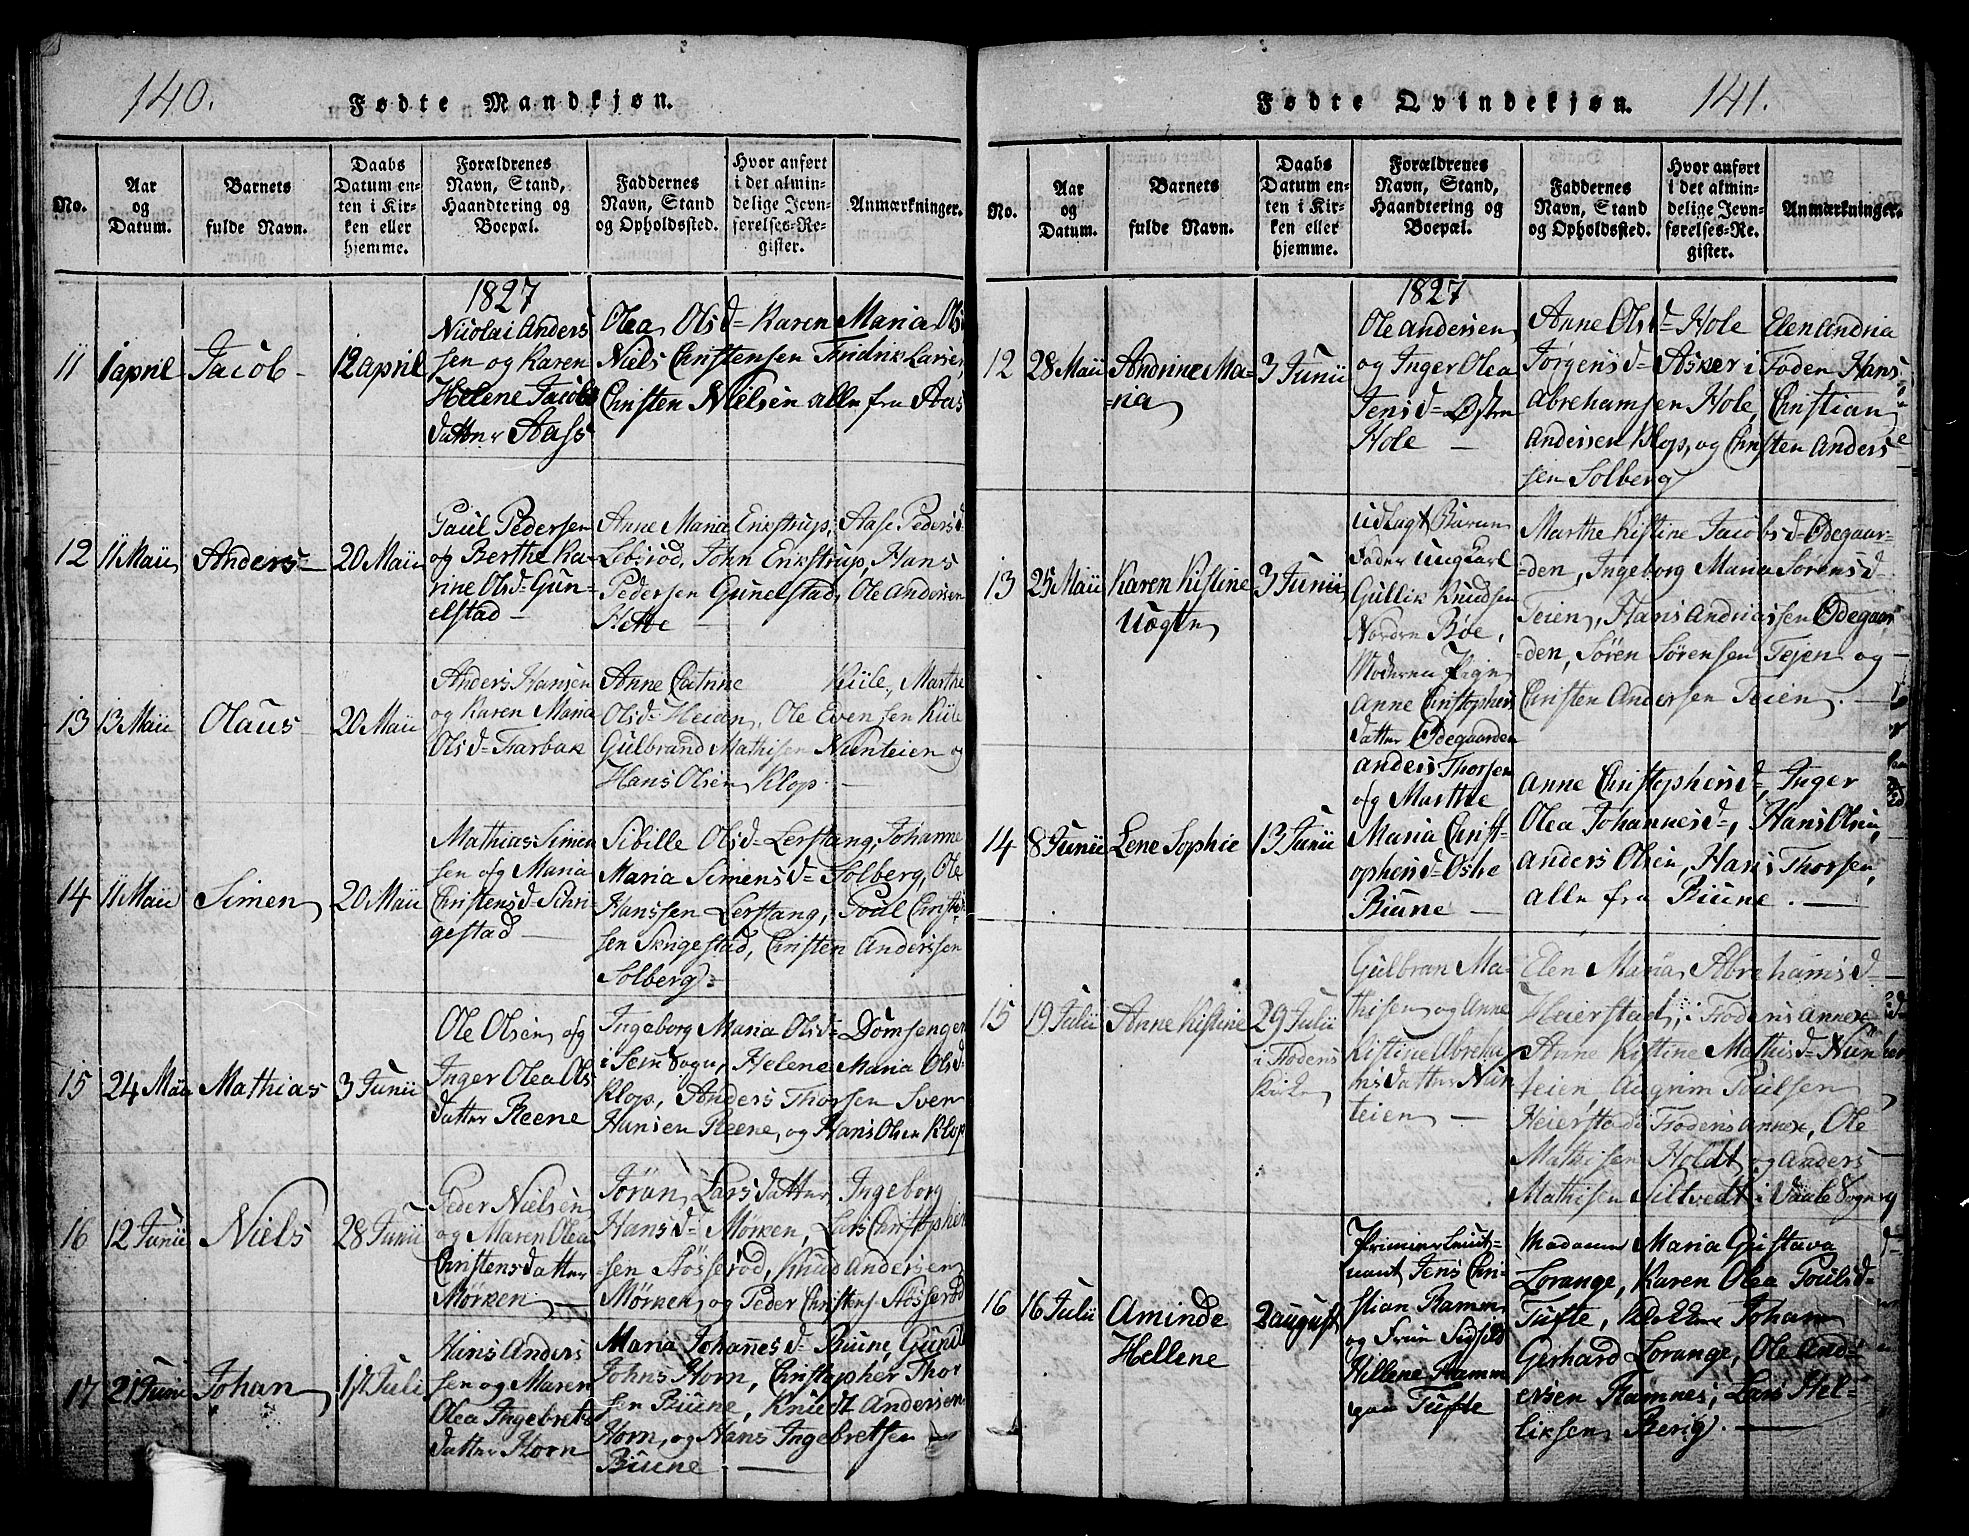 140.
Fødte Mandkjøn.
No.
Aar
og
Datum.
Barnets
fulde Navn.
Daabs
Datum en-
ten i Kir-
ken eller
hjemme.
Forældrenes
Navn, Stand,
Haandtering og
Boepæl.
Faddernes
Navn, Stand
og Opholdssted.
Hvor anført
i det almin-
delige Jevn-
førelses-Re-
gister.
Anmærkninger.
1827
11
1 april
Jacob
12 april
Nicolai Anders
sen og Karen
Helene Jacobs
datter Aass
Olea Olsd= Karen Maria Ols
Niels Christensen Fredrik Larsen
Christen Nielsen alle fra Aas
12
11 Maii
Anders
20 Maii
Paul Pedersen
og Berthe Ka-
rine Olsd= Gun-
elstad
Anne Maria Erikstrup, Aase Pedersd
Løsrød, John Erikstrup, Hans
Pedersen Gunelstad, Ole Andersen
Hette
13
13 Maii
Olaus
20 Maii
Anders Hansen
og Karen Maria
Olsd= Farbak
Anne Catrine Kiile, Marthe
Olsd= Heian, Ole Evensen Kiile
Gulbrand Mathisen Nunteien og
Hans Olsen Klop.
14
11 Maii
Simen
20 Maii
Mathias Simen
sen og Maria
Christensd= Schri
gestad
Sibille Olsd= Lerstang, Johanne
Maria Simensd= Solberg, Ole
Hanssen Lerstang, Poul Christ
sen Skrigestad, Christen Anderssen
Solberg
15
24 Maii
Mathias
3 Junii
Ole Olsen og
Inger Olea Ols
datter Reene
Ingeborg Maria Olsd= Domsengen
i Sem Sogn, Helene Maria Olsd=
Klop, Anders Thorsen Sven
Hansen Reene, og Hans Olsen Klop
16
12 Junii
Niels
28 Junii
Peder Nielsen
og Maren Olea
Christensdatter
Mørken
Jøran Larsdatter, Ingeborg
Hansd= Mørken, Lars Christophen
sen Støsserød, Knud Andersen
Mørken og Peder Christens Støsserød
17
21 Junii
Johan
17 Juli
Hans Anders
sen og Maren
Olea Ingebrets
datter Horn
Maria Johannesd= Biune, Gunil
Johns Horn, Christopher Thor
sen Biune, Knudt Andersen
Horn, og Hans Ingebretsen
Biune
141.
Fødte Qvindekjøn.
No.
Aar
og
Datum.
Barnets
fulde Navn.
Daabs
Datum en-
ten i Kir-
ken eller
hjemme.
Forældrenes
Navn, Stand,
Haandtering og
Boepæl.
Faddernes
Navn, Stand
og Opholdssted.
Hvor anført
i det almin-
delige Jevn-
førelses-Re-
gister.
Anmærkninger.
1827
12
28 Maii
Andrine Ma-
=ria
3 Junii
Ole Andersen
og Inger Olea
Jensd= Østre
Hole
Anne Olsd= Hole Elen Andria
Jørgensd= Asker i Foden Hans
Abrehamsen Hole, Christian
Andersen Klop, og Christen Anders
sen Solberg
13
25 Maii
Karen Kistine
Uægte
3 Junii
Udlagt Barne
Fader Ungkarl
Gullik Knudsen
Nordre Bøe,
Moderen Pigen
Anne Christophers
datter Ødegaarden
Marthe Kistine Jacobsd= Ødegaar-
=den, Ingeborg Maria Sørensd=
Teien, Hans Andriassen Ødegaar
=den, Søren Sørensen Tejen og
Christen Andersen Teien.
14
8 Junii
Lene Sophie
13 Junii
Anders Thorsen
og Marthe
Maria Christ-
ophersd= Østre
Biune
Anne Christophersd=, Inger
Olea Johannesd=, Hans Olsen,
Anders Olsen, Hans Thorsen,
alle fra Biune.
15
19 Julii
Anne Kistine
29 Julii
i Frodens
Kirke
Gulbran Ma-
thisen og Anne
Kistine Abreha
msdatter Nun
teien
Elen Maria Abrehamsd=
Heierstad, i Frodens Annex
Anne Kistine Mathisd= Nun
teien, Augrim Poulsen
Heierstad i Frodens Annex, Ole
Mathisen Holdt og Anders
Mathisen Siltvedt i Vaale Sogn
16
16 Julii
Aminde
Hellene
2 august
Primier Leut=
nant Jens Chri-
stian Ramm
og Frue Sidsild
Hellene Ramm
paa Tufte
Madame Maria Gustava
Lorange, Karen Olea Poulsd=
Tufte, Johan
Gerhard Lorange, Ole And=
ersen Ramnes, Lars Hel=
liksen Berig.